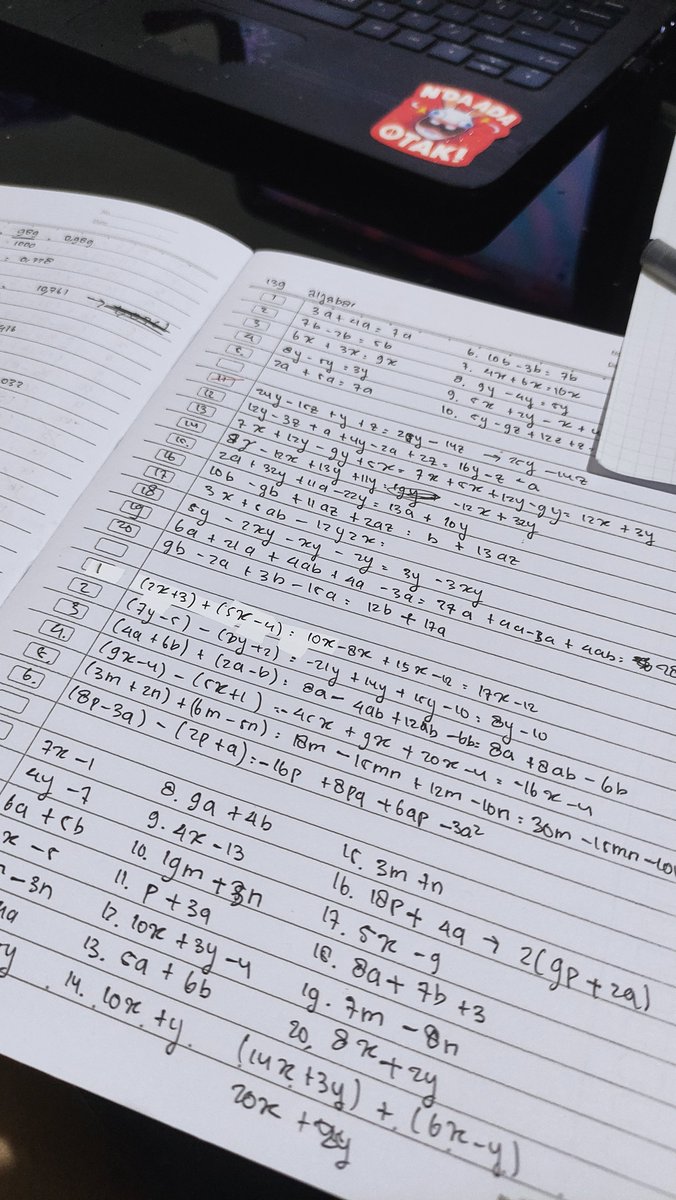 N'DA ADA
OTAK!
989
1000
= 0,989
10,761 →
139 aljabar
1 3a + 4a = 7a
2 7b - 2b = 5b
3 6x + 3x = 9x
4. 8y - 5y = 3y
5. 2a + 5a = 7a
6. 10b - 3b = 7b
7. 4x + 6x = 10x
8. 9y - 4y = 5y
9. 5x + 2y - x + 4
10. 5y - 9z + 12z + z
11 24y - 15z + y + z = 25y - 14z → 25y - 14z
12 12y - 3z + a + 4y - 2a + 2z = 16y - z - a
13 7x + 12y - 9y + 5x = 7x + 5x + 12y - 9y = 12x + 3y
14 8y - 12x + 13y + 11y = - 12x + 32y
15. 2a + 32y + 11a - 22y = 13a + 10y
16 10b - 9b + 11az + 2az = b + 13az
17 3x + 5ab - 12yzx =
18 5y - 2xy - xy - 2y = 3y - 3xy
19 6a + 21a + 4ab + 4a - 3a = 27a + 4a - 3a + 4ab =
20 9b - 2a + 3b - 15a = 12b + 17a
1 (2x+3) + (5x-4) = 10x - 8x + 15x - 12 = 17x - 12
2 (7y-5) - (3y+2) = -21y + 14y + 15y - 10 = 8y - 10
3 (4a + 6b) + (2a - b) = 8a - 4ab + 12ab - 6b = 8a + 8ab - 6b
4. (9x-4) - (5x+1) = -45x + 9x + 20x - 4 = -16x - 4
5. (3m + 2n) + (6m - 5n) = 18m - 15mn + 12m - 10n = 30m - 15mn - 10n
6. (8p - 3q) - (2p + q) = -16p + 8pq + 6qp - 3q²
7x - 1
4y - 7
6a + 5b
x - 5
- 3n
8. 9a + 4b
9. 4x - 13
10. 19m + 3n
11. p + 3q
12. 10x + 3y - 4
13. 5a + 6b
14. 10x + y
15. 3m + n
16. 18p + 4q → 2(9p + 2q)
17. 5x - 9
18. 8a + 7b + 3
19. 7m - 8n
20. 8x + 2y
(14x + 3y) + (6x - y)
20x + 2y